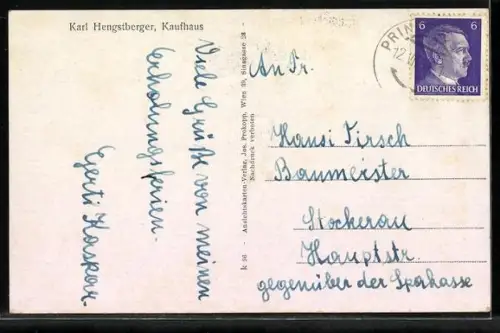 Karl Hengstberger, Kaufhaus
Viele Grüße von meinen
Erholungsferien.
Gerti Kaskar
k 56 - Ansichtskarten-Verlag, Jos. Prokopp, Wien 30, Sinagasse 24 -
Nachdruck verboten
PRIN
12.V
6 6
DEUTSCHES REICH
An Fr.
Hansi Firsch
Baumeister
Stockerau
Hauptstr.
gegenüber der Sparkasse